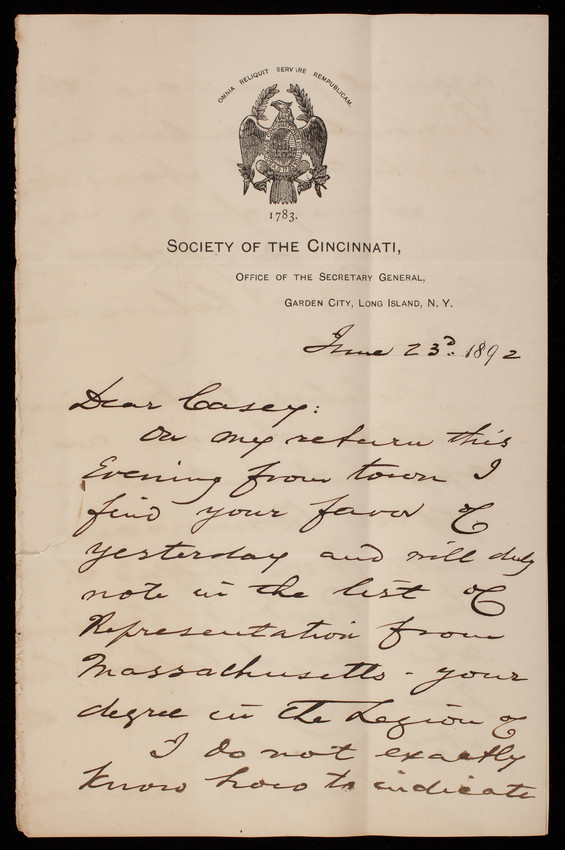 OMNIA RELIQUIT SERVARE REMPUBLICAM.
1783.
SOCIETY OF THE CINCINNATI,
OFFICE OF THE SECRETARY GENERAL,
GARDEN CITY, LONG ISLAND, N. Y.
June 23d. 1892
Dear Casey:
On my return this
Evening from town I
find your favor of
yesterday and will duly
note in the list of
Representation from
Massachusetts - your
degree in the Legion of
I do not exactly
know how to indicate